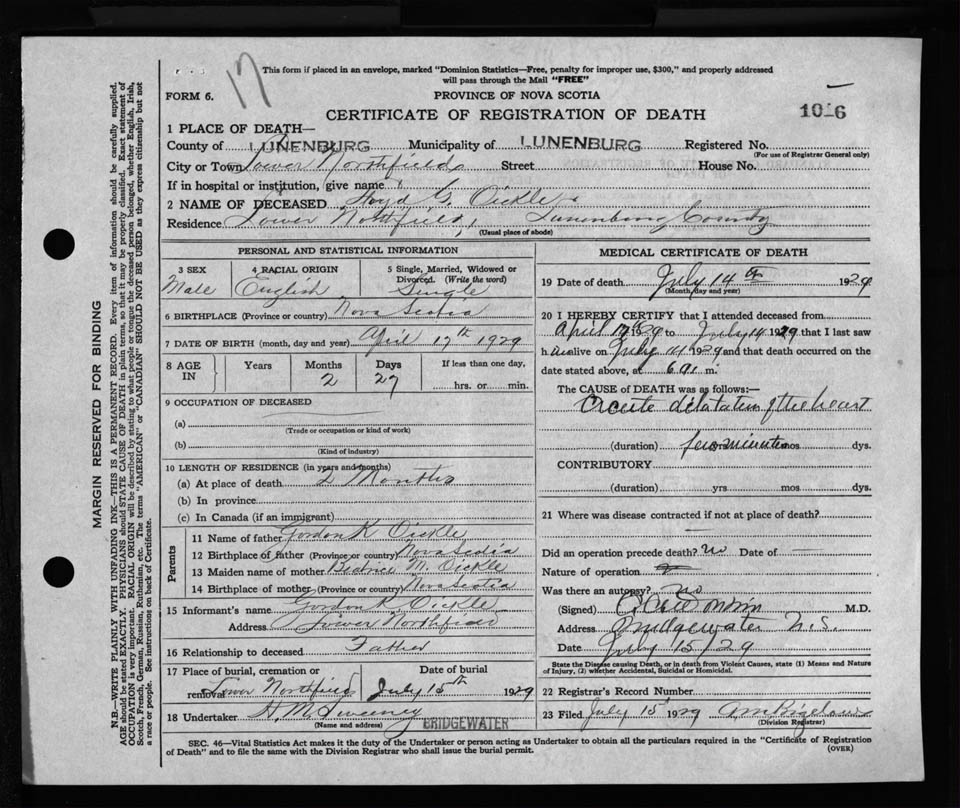 17
This form if placed in an envelope, marked "Dominion Statistics—Free, penalty for improper use, $300," and properly addressed
will pass through the Mail "FREE"
FORM 6.
PROVINCE OF NOVA SCOTIA
CERTIFICATE OF REGISTRATION OF DEATH
1016
1 PLACE OF DEATH—
County of LUNENBURG Municipality of LUNENBURG Registered No.
(For use of Registrar General only)
City or Town Lower Northfield Street House No.
If in hospital or institution, give name
2 NAME OF DECEASED Floyd G. Oickle
Residence Lower Northfield, Lunenburg County
(Usual place of abode)
PERSONAL AND STATISTICAL INFORMATION
3 SEX Male
4 RACIAL ORIGIN English
5 Single, Married, Widowed or Divorced. (Write the word) Single
6 BIRTHPLACE (Province or country) Nova Scotia
7 DATE OF BIRTH (month, day and year) April 17th 1929
8 AGE IN Years Months Days If less than one day,
2 27 hrs. or min.
9 OCCUPATION OF DECEASED
(a)
(Trade or occupation or kind of work)
(b)
(Kind of industry)
10 LENGTH OF RESIDENCE (in years and months)
(a) At place of death 2 Months
(b) In province
(c) In Canada (if an immigrant)
Parents
11 Name of father Gordon K. Oickle
12 Birthplace of father (Province or country) Nova Scotia
13 Maiden name of mother Beatrice M. Oickle
14 Birthplace of mother (Province or country) Nova Scotia
15 Informant's name Gordon K. Oickle
Address Lower Northfield
16 Relationship to deceased Father
17 Place of burial, cremation or removal Lower Northfield
Date of burial July 15th 1929
18 Undertaker H. M. Sweeney BRIDGEWATER
(Name and address)
MEDICAL CERTIFICATE OF DEATH
19 Date of death July 14th 1929
(Month, day and year)
20 I HEREBY CERTIFY that I attended deceased from
April 17th 1929 to July 14 1929 that I last saw
h alive on July 14 1929 and that death occurred on the
date stated above, at 6 a m.
The CAUSE of DEATH was as follows:—
Acute dilatation of the heart
(duration) few minutes mos dys.
CONTRIBUTORY
(duration) yrs mos dys.
21 Where was disease contracted if not at place of death?
Did an operation precede death? no Date of —
Nature of operation
Was there an autopsy? no
(Signed) M.D.
Address Bridgewater N.S.
Date July 15/29
State the Disease causing Death, or in death from Violent Causes, state (1) Means and Nature
of Injury, (2) whether Accidental, Suicidal or Homicidal.
22 Registrar's Record Number
23 Filed July 15th 1929 A M Bigelow
(Division Registrar)
SEC. 46—Vital Statistics Act makes it the duty of the Undertaker or person acting as Undertaker to obtain all the particulars required in the "Certificate of Registration
of Death" and to file the same with the Division Registrar who shall issue the burial permit.
(OVER)
MARGIN RESERVED FOR BINDING
N.B.—WRITE PLAINLY WITH UNFADING INK—THIS IS A PERMANENT RECORD. Every item of information should be carefully supplied.
AGE should be stated EXACTLY. PHYSICIANS should STATE CAUSE OF DEATH in plain terms, so that it may be properly classified. Exact statement of
OCCUPATION is very important. RACIAL ORIGIN will be described by stating to what people or tongue the deceased person belonged, whether English, Irish,
Scotch, French, German, Russian, Ruthenian, etc. The terms "AMERICAN" or "CANADIAN" SHOULD NOT BE USED as they express citizenship but not
a race or people. See instructions on back of Certificate.